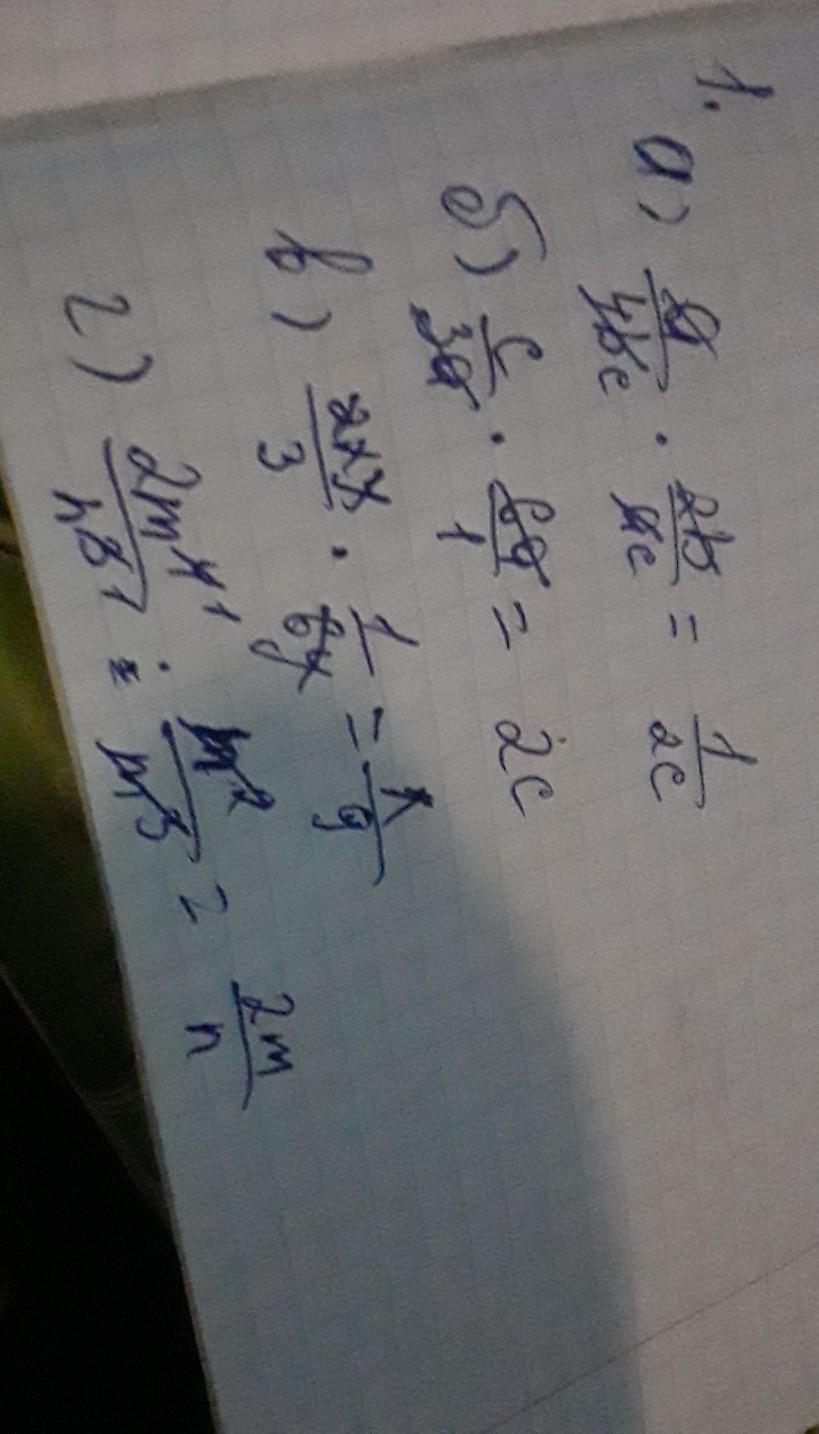 1.
а) a/4bc · 2b/ac = 1/2c
б) c/3a · 6a/1 = 2c
в) 2xy/3 · 1/6y = x/9
г)
= 2m/n